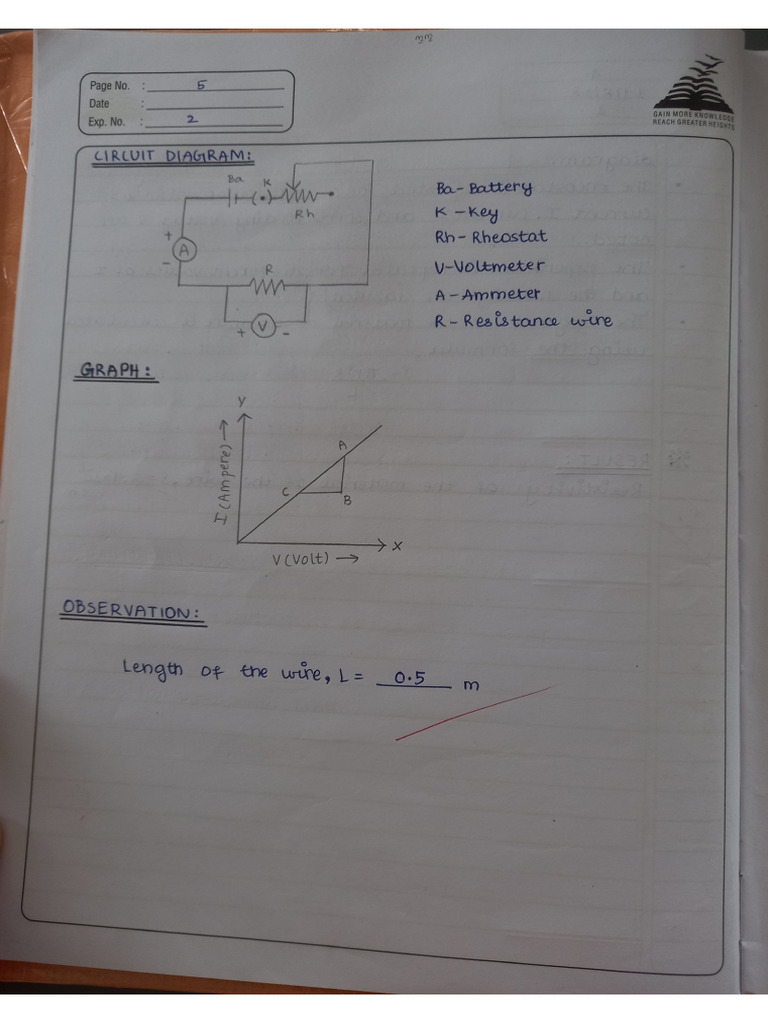 Page No. : 5
Date :
Exp. No. : 2
GAIN MORE KNOWLEDGE
REACH GREATER HEIGHTS
CIRCUIT DIAGRAM:
Ba K
Rh
+
A
-
R
+ V -
Ba - Battery
K - Key
Rh - Rheostat
V - Voltmeter
A - Ammeter
R - Resistance wire
GRAPH:
Y
I (Ampere) →
A
C
B
X
V (Volt) →
OBSERVATION:
Length of the wire, L = 0.5 m